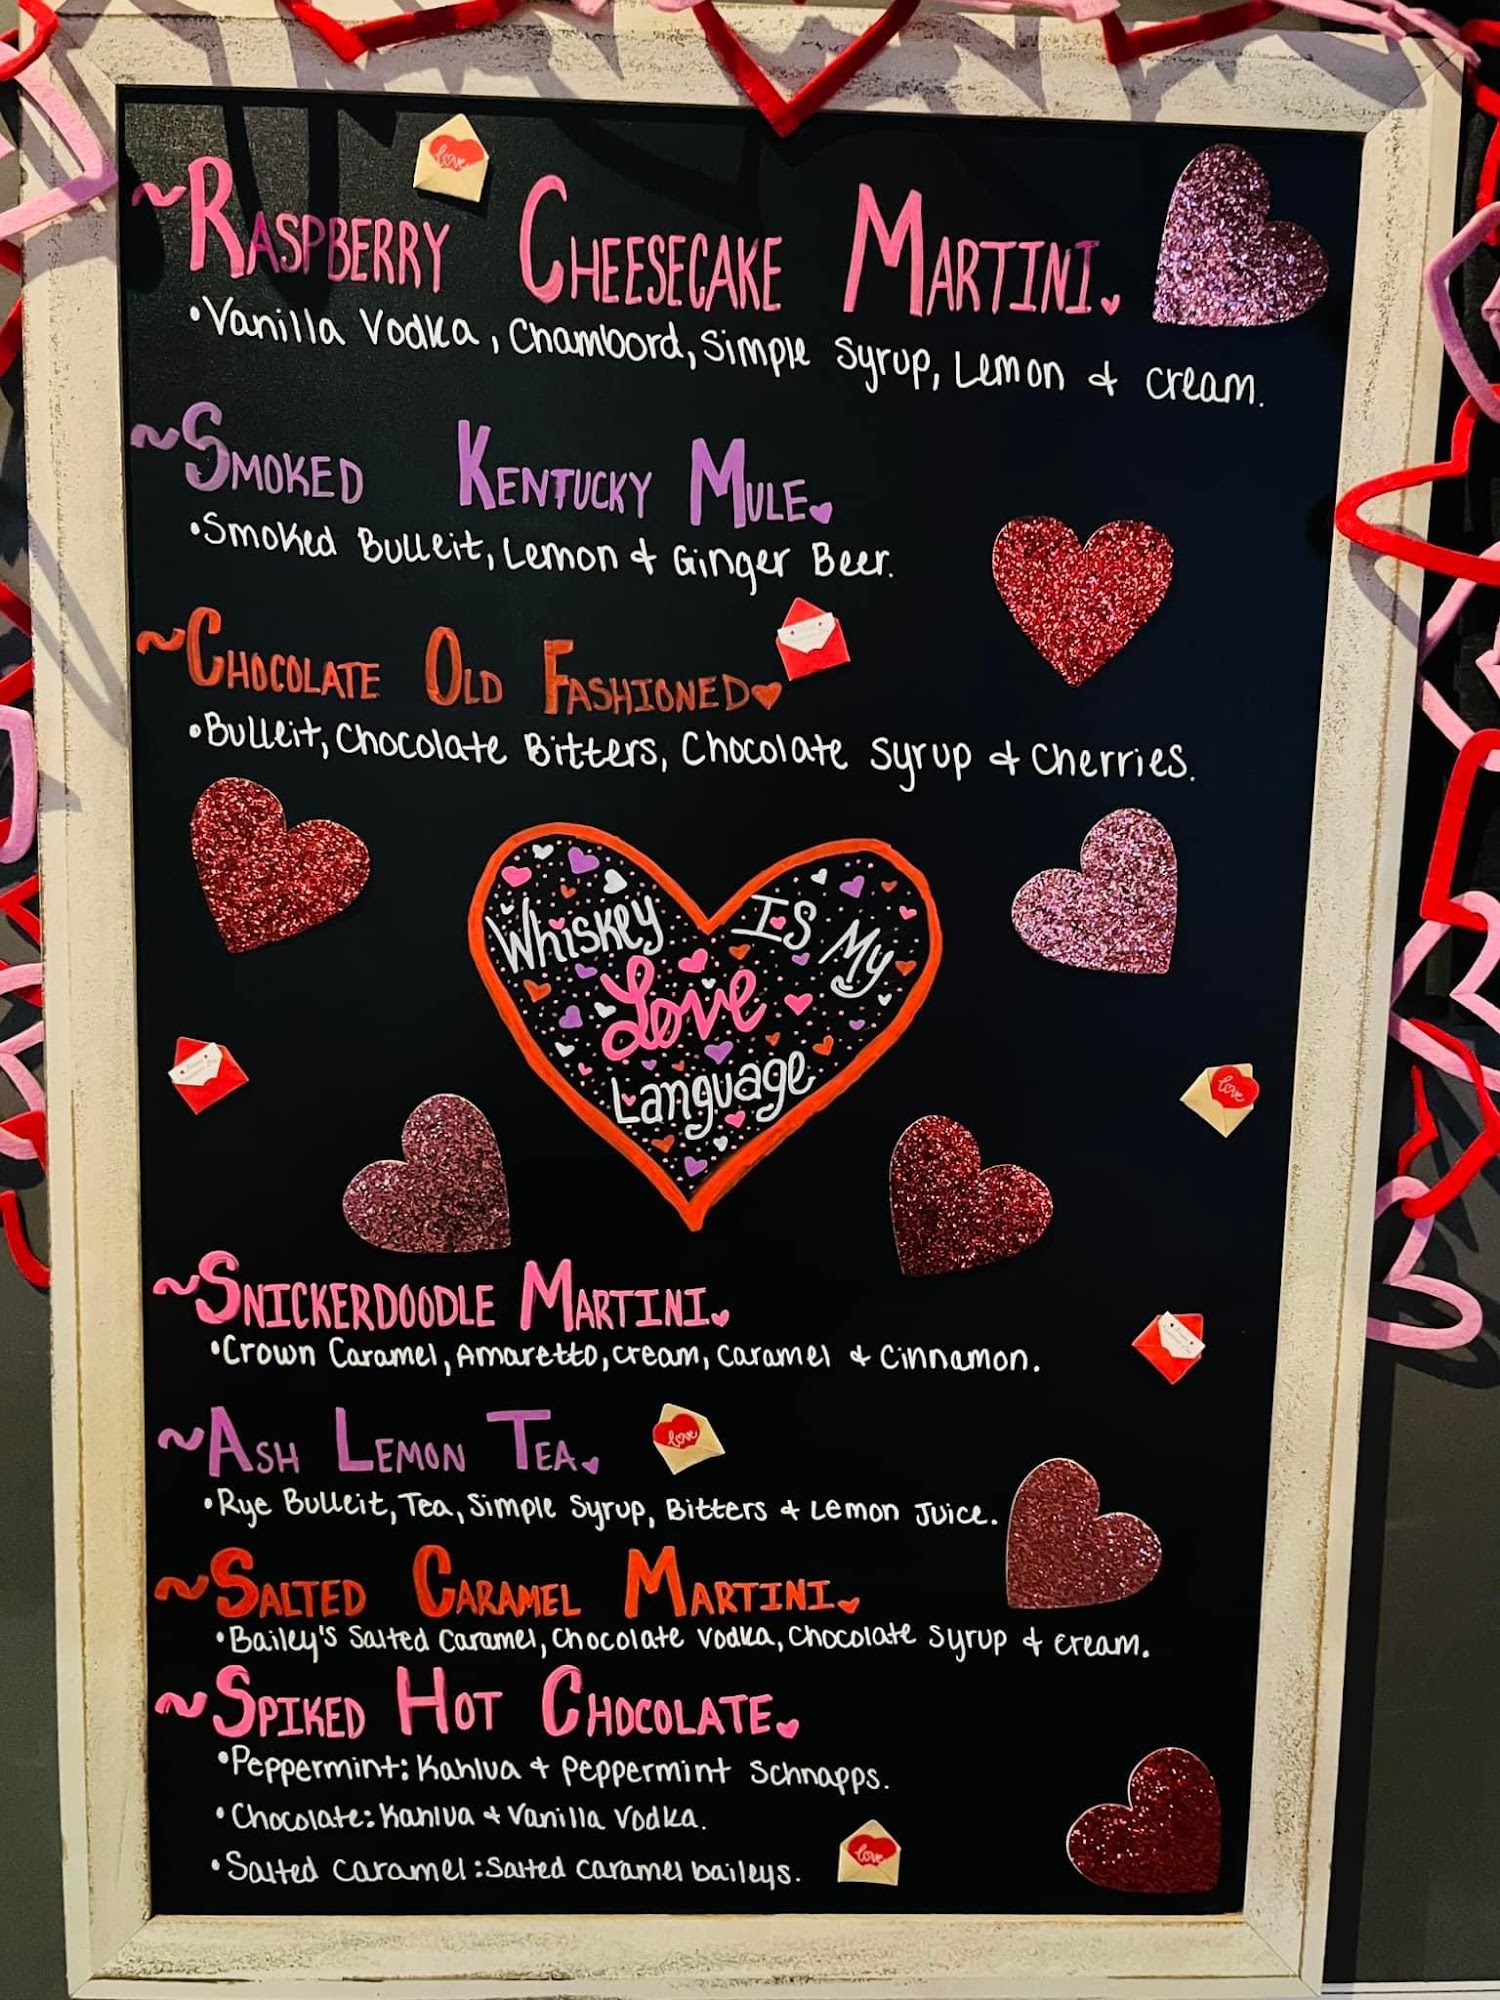 love
~Raspberry Cheesecake Martini
•Vanilla Vodka, Chambord, Simple Syrup, Lemon & cream.
~Smoked Kentucky Mule
•Smoked Bulleit, Lemon & Ginger Beer.
~Chocolate Old Fashioned
•Bulleit, Chocolate Bitters, Chocolate Syrup & Cherries.
Whiskey Is My
Love
Language
love
~Snickerdoodle Martini
•Crown Caramel, Amaretto, cream, caramel & Cinnamon.
~Ash Lemon Tea
love
•Rye Bulleit, Tea, Simple Syrup, Bitters & Lemon Juice.
~Salted Caramel Martini
•Bailey's Salted Caramel, Chocolate Vodka, Chocolate Syrup & cream.
~Spiked Hot Chocolate
•Peppermint: Kahlua & Peppermint Schnapps.
•Chocolate: Kahlua & Vanilla Vodka.
•Salted Caramel: Salted caramel baileys.
love